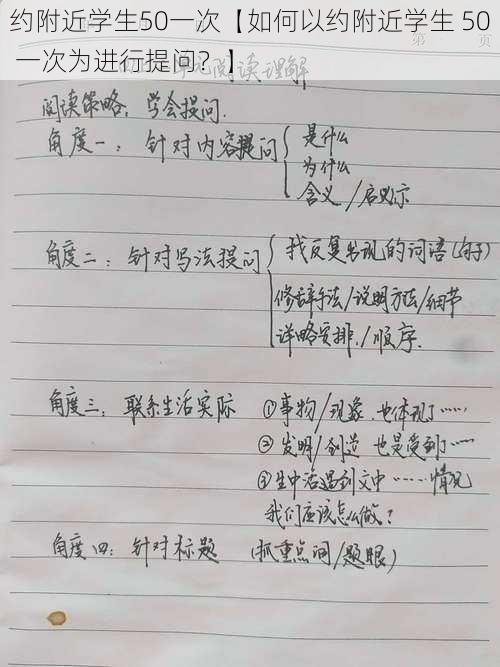 约附近学生50一次【如何以约附近学生 50
一次为进行提问？】
第 页
阅读理解
阅读策略：学会提问.
角度一：针对内容提问
是什么
为什么
含义/启示
角度二：针对写法提问
找反复出现的词语(句子)
修辞手法/说明方法/细节
详略安排./顺序.
角度三：联系生活实际 ①事物/现象.也体现了……
②发明/创造 也是受到……
③生中活遇到文中……情况
我们应该怎么做？
角度四：针对标题 (抓重点词/题眼)